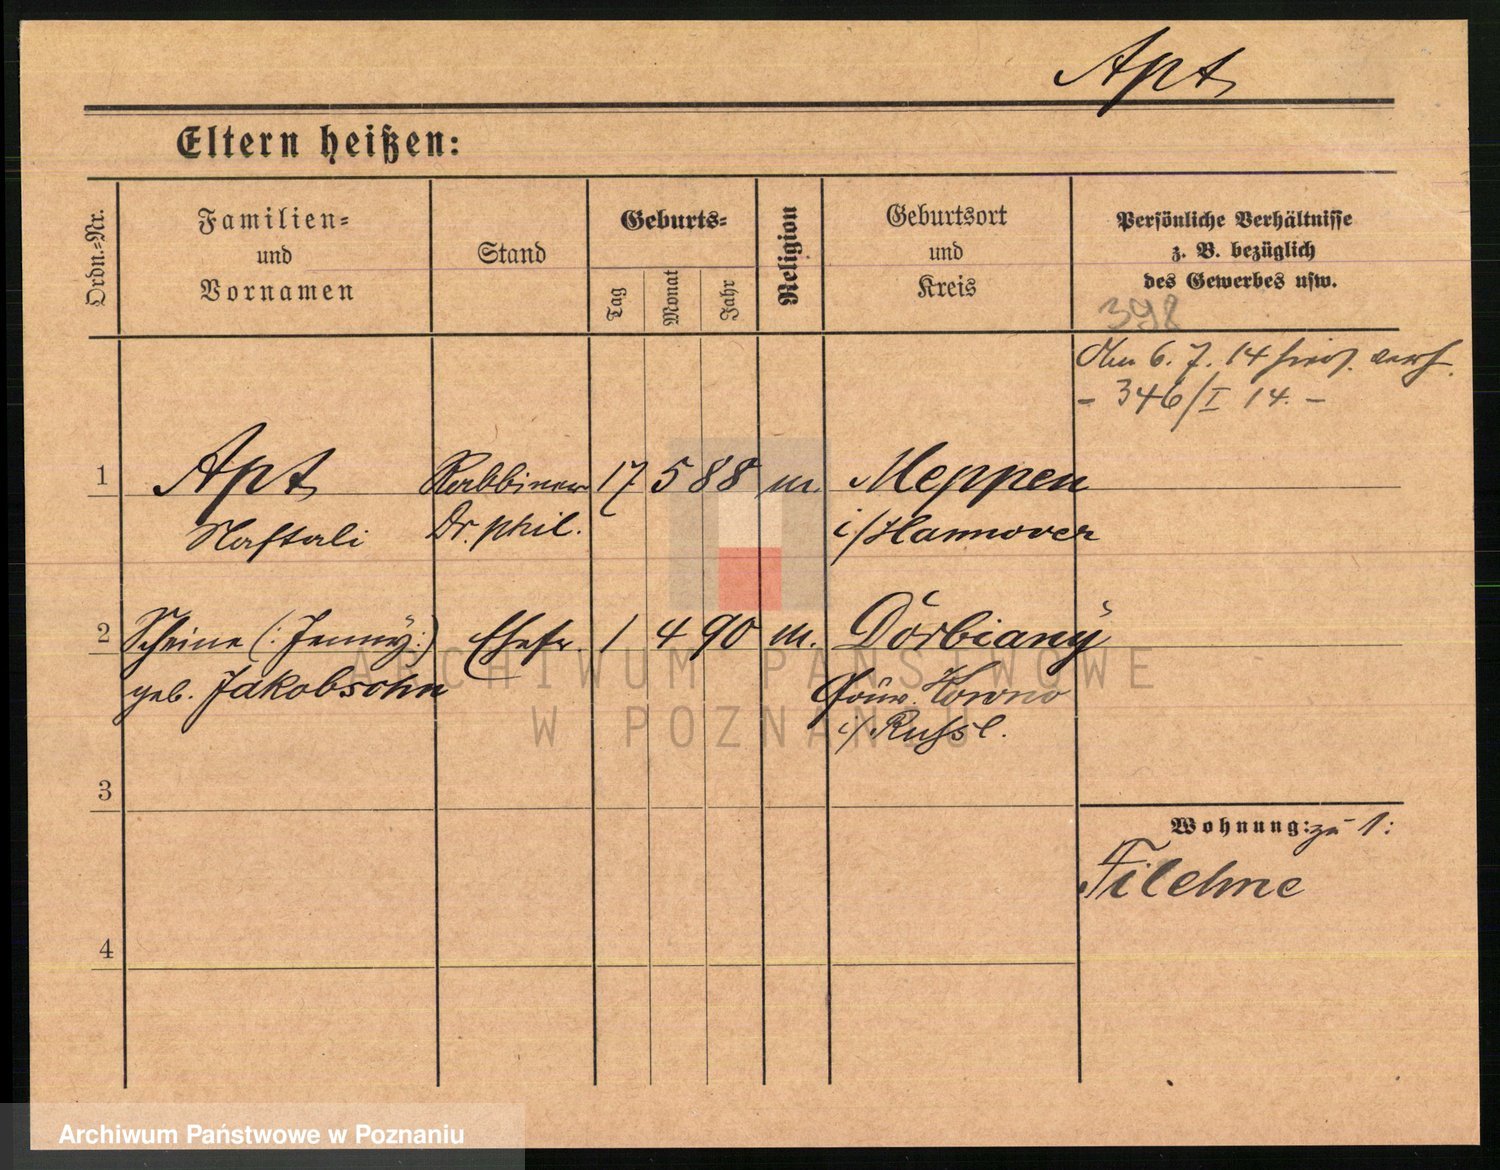 Apt
Eltern heißen:
Ordn.-Nr.
Familien-
und
Vornamen
Stand
Geburts-
Tag
Monat
Jahr
Religion
Geburtsort
und
Kreis
Persönliche Verhältnisse
z. B. bezüglich
des Gewerbes usw.
398
6. 7. 14
- 346/I 14. -
1 Apt Rabbiner 17 5 88 m. Meppen
Naftali Dr. phil. i/Hannover
2 Scheine (: Jenny:) Ehefr. 1 4 90 m. Dorbiany
geb. Jakobsohn Gouv. Kowno
i/Russl.
3
Wohnung: zu 1:
Filehne
4
ARCHIWUM PAŃSTWOWE
W POZNANIU
Archiwum Państwowe w Poznaniu